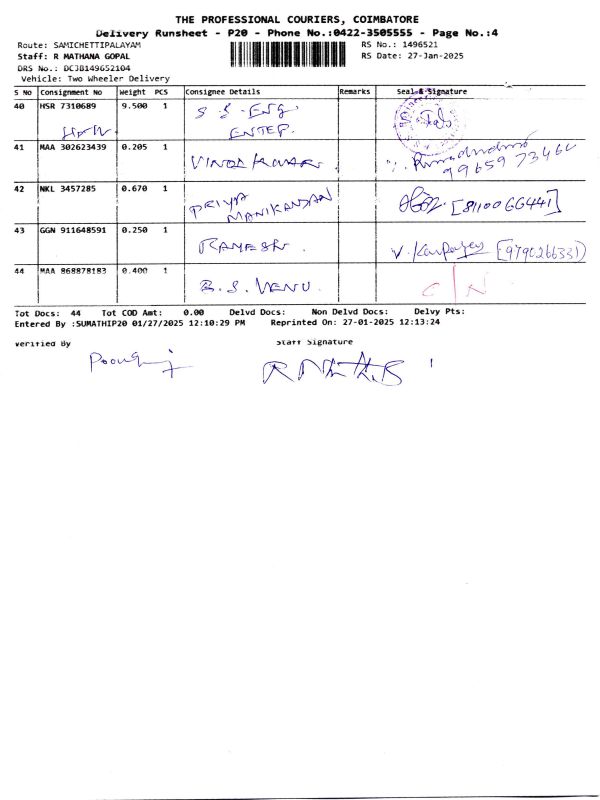 THE PROFESSIONAL COURIERS, COIMBATORE
Delivery Runsheet - P20 - Phone No.:0422-3505555 - Page No.:4
Route: SAMICHETTIPALAYAM RS No.: 1496521
Staff: R MATHANA GOPAL RS Date: 27-Jan-2025
DRS No.: DCJB149652104
Vehicle: Two Wheeler Delivery
S No Consignment No Weight PCS Consignee Details Remarks Seal & Signature
40 HSR 7310689 9.500 1 S S ENG
ENTEP.
41 MAA 302623439 0.205 1 VINOTH KUMAR
42 NKL 3457285 0.670 1 PRIYA [8110066441]
MANIKANDAN
43 GGN 911648591 0.250 1 RAMESH V. [9790266331]
44 MAA 868878183 0.400 1 B. S. VENU. C/N
Tot Docs: 44 Tot COD Amt: 0.00 Delvd Docs: Non Delvd Docs: Delvy Pts:
Entered By :SUMATHIP20 01/27/2025 12:10:29 PM Reprinted On: 27-01-2025 12:13:24
Verified By Staff Signature